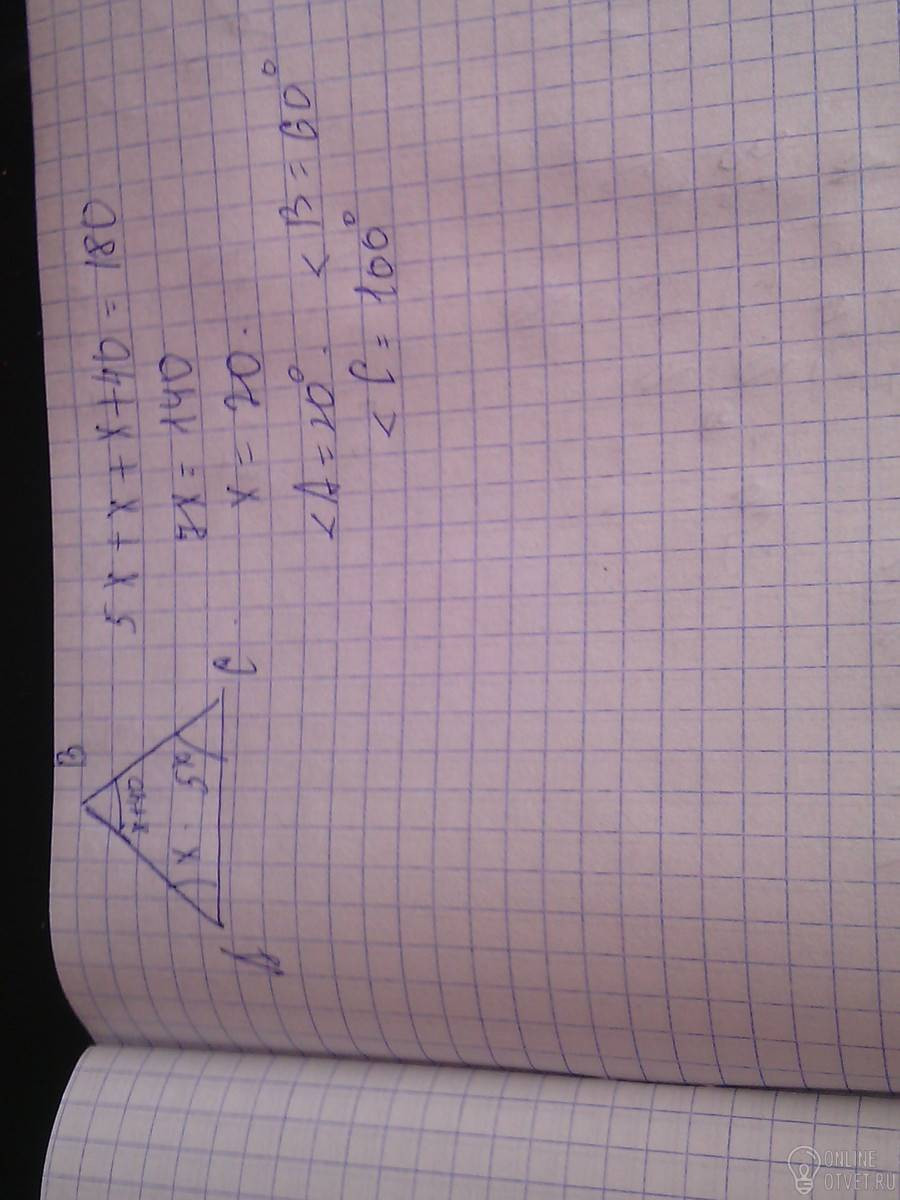 B
x+40
x 5x
A C
5x + x + x + 40 = 180
7x = 140
x = 20.
<A = 20°. <B = 60°
<C = 100°
ONLINE
OTVET.RU